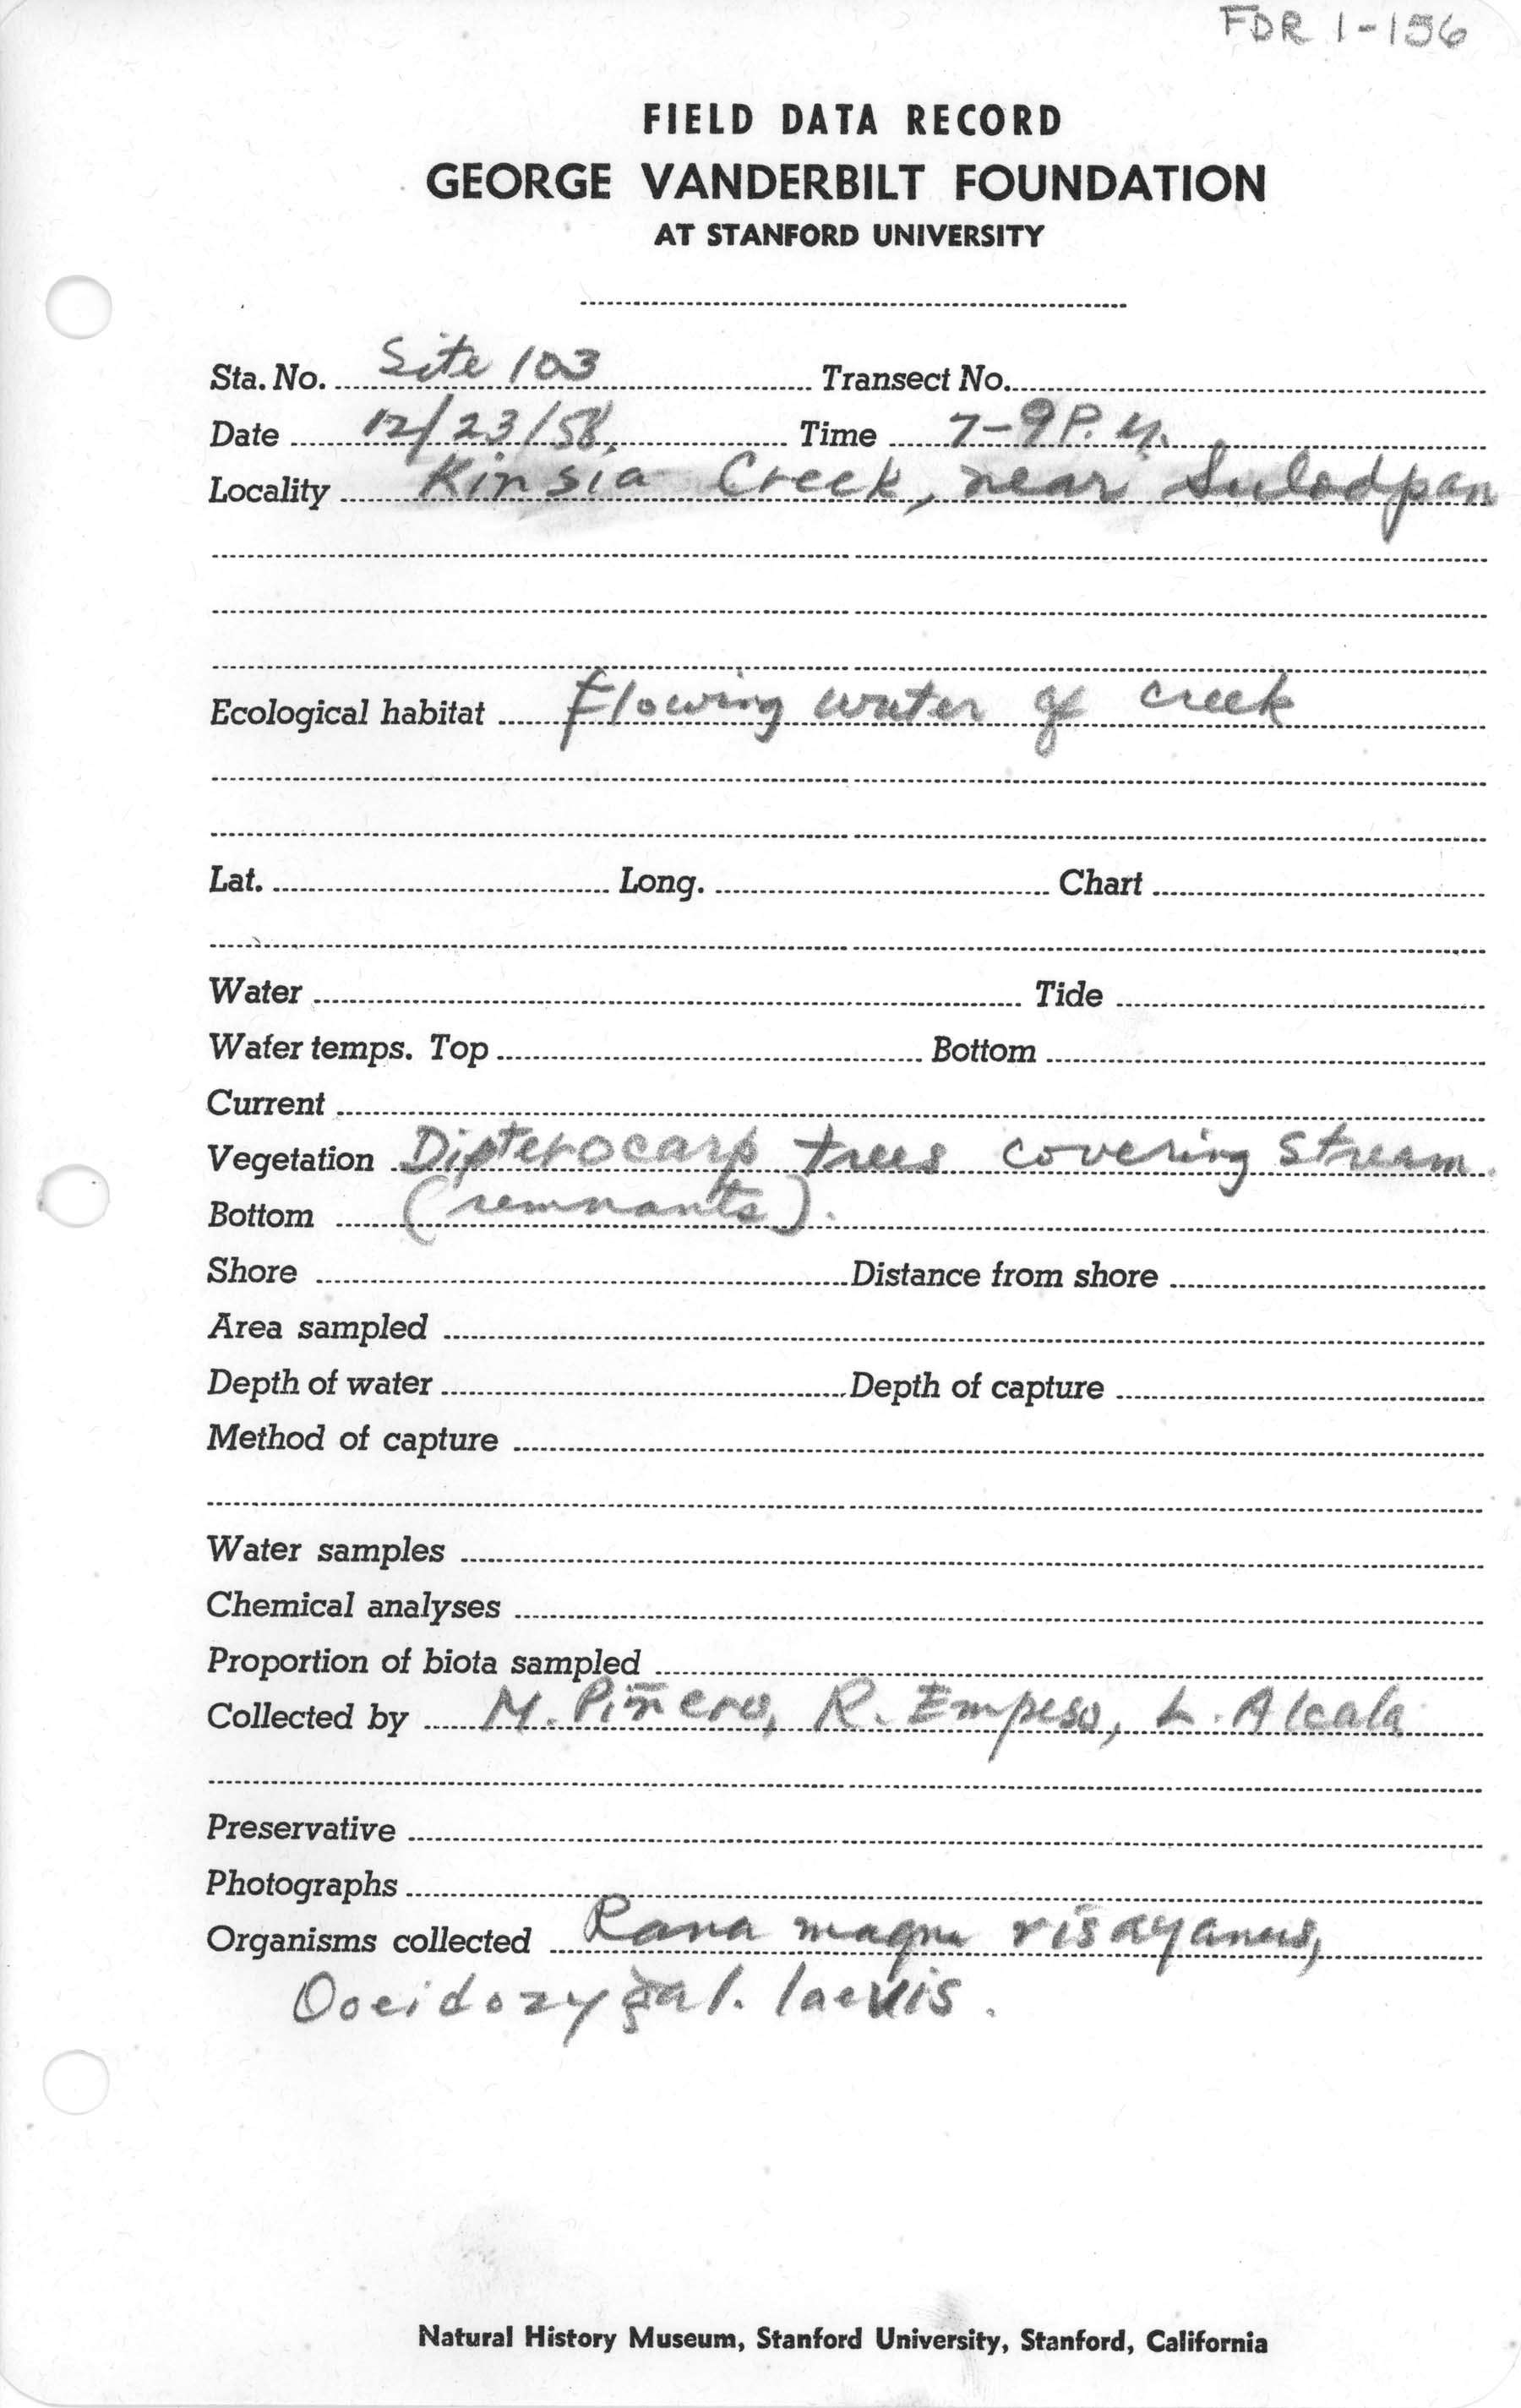 FDR 1-156
FIELD DATA RECORD
GEORGE VANDERBILT FOUNDATION
AT STANFORD UNIVERSITY
Sta. No. Site 103 Transect No.
Date 12/23/58, Time 7-9 P.M.
Locality Kinsia Creek, near Sulodpan
Ecological habitat flowing water of creek
Lat. Long. Chart
Water Tide
Water temps. Top Bottom
Current
Vegetation Dipterocarp trees covering stream.
Bottom (remnants).
Shore Distance from shore
Area sampled
Depth of water Depth of capture
Method of capture
Water samples
Chemical analyses
Proportion of biota sampled
Collected by M. Piñero, R. Empeso, L. Alcala
Preservative
Photographs
Organisms collected Rana magna visayanus,
Ooeidozyga l. laevis.
Natural History Museum, Stanford University, Stanford, California